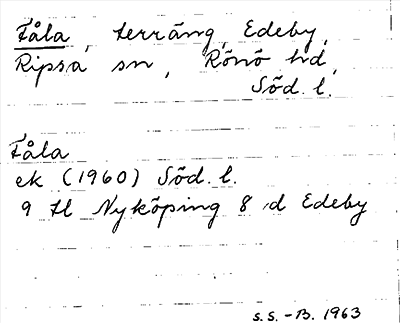 Fåla, terräng, Edeby,
Ripsa sn, Rönö hd,
Söd. l.
Fåla
ek (1960) Söd. l.
9 H Nyköping 8 d Edeby
S.S.-B. 1963